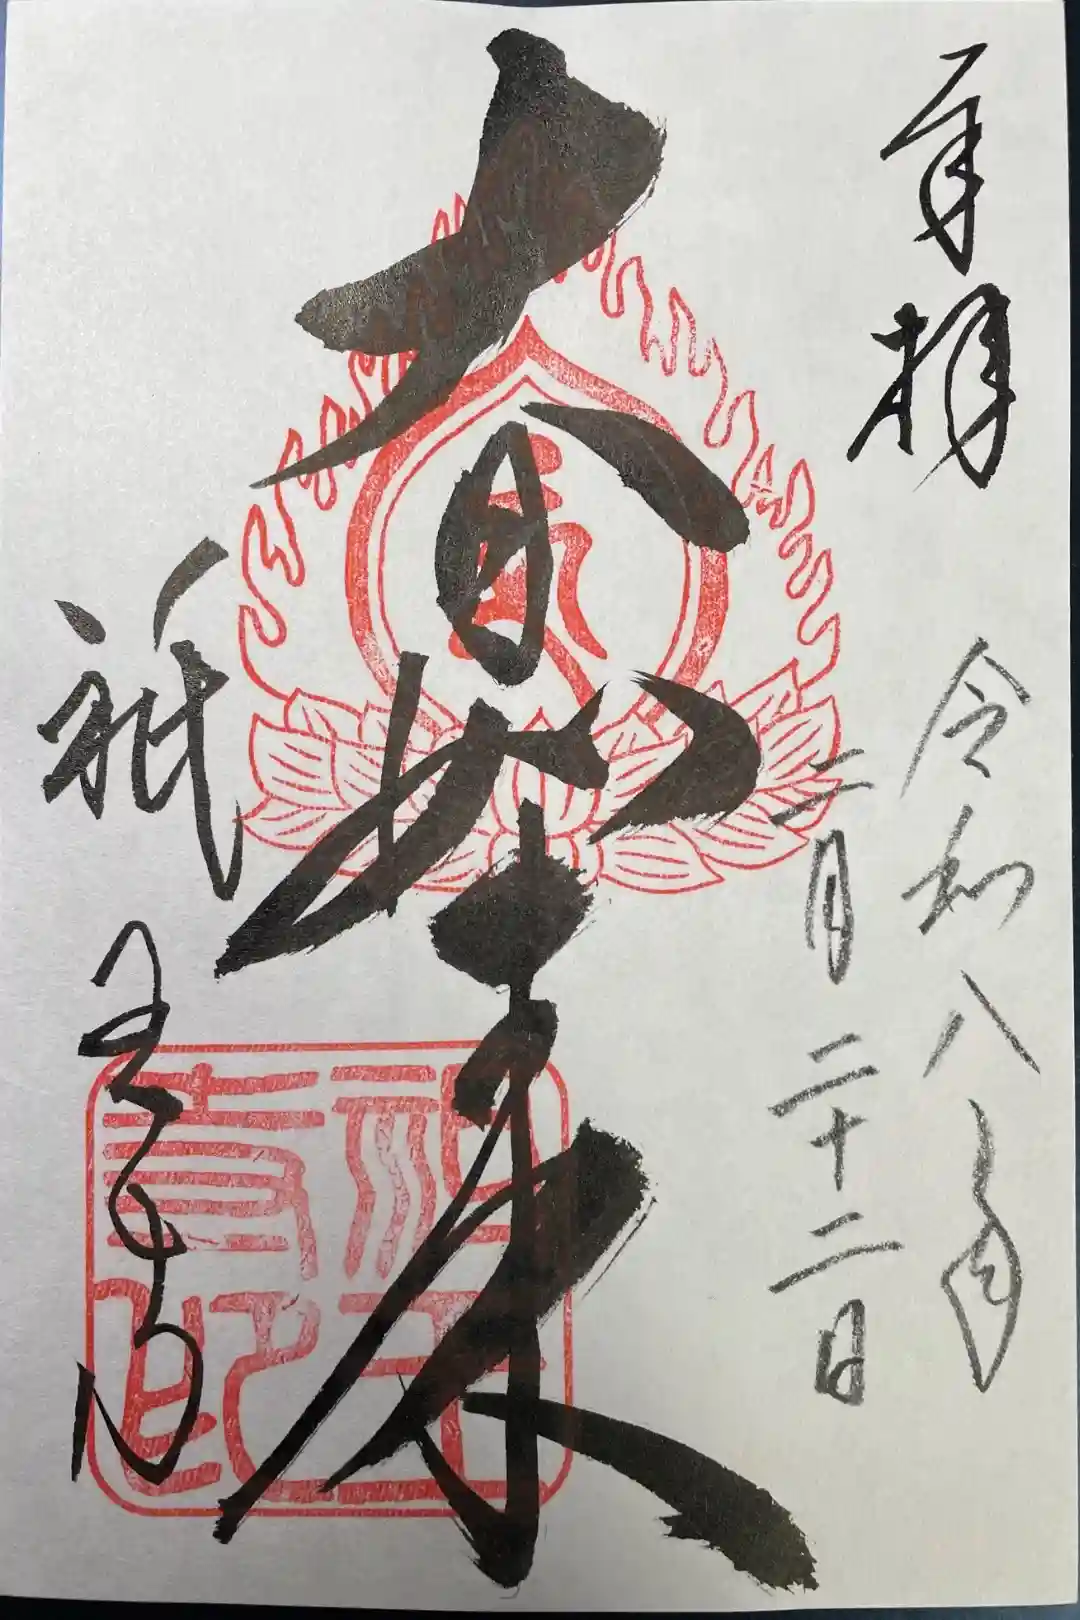 奉拝
令和八年
二月二十二日
大日如来
祇王寺
祇王寺印